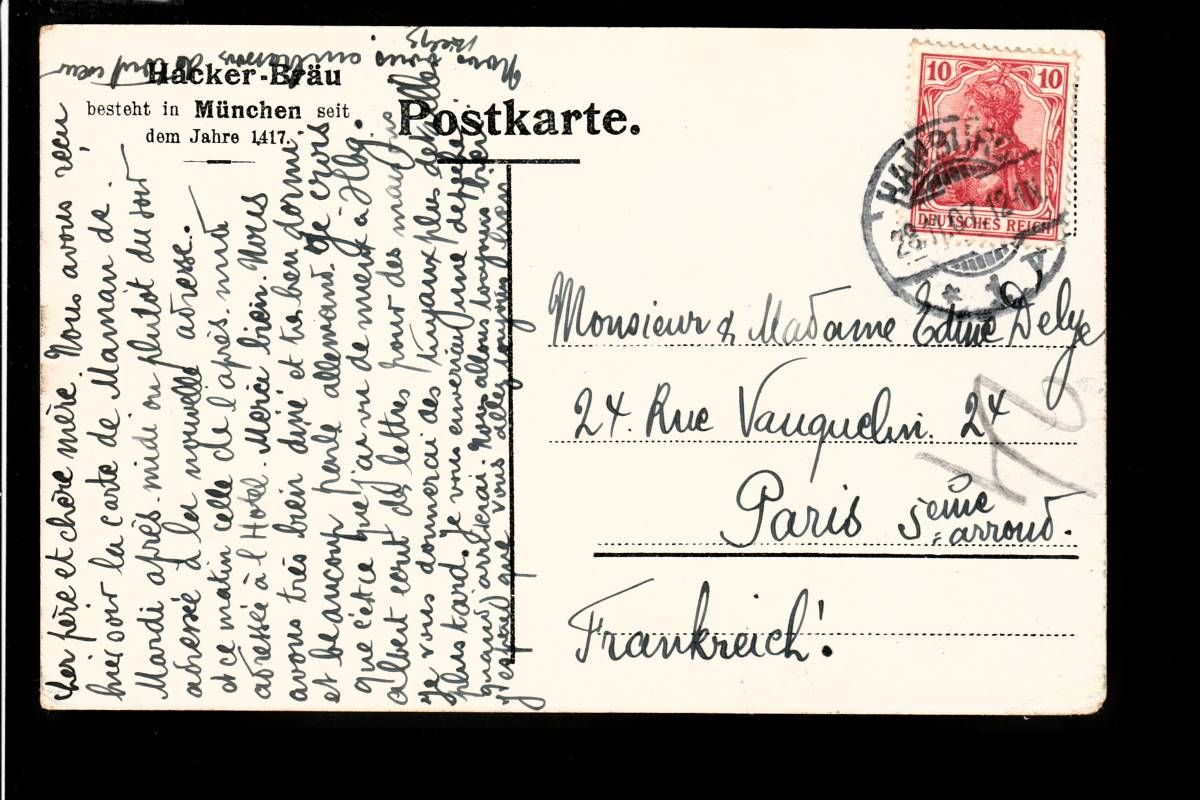 Hacker-Bräu
besteht in München seit
dem Jahre 1417.
Postkarte.
10 10
DEUTSCHES REICH
HAMBURG
12-1N.
* 1 v
Monsieur & Madame Edme Delye
24 Rue Vauquelin. 24
Paris 5eme
arrond.
Frankreich!
Cher père et chère mère. Nous avons reçu
hier soir la carte de Maman de
Mardi après-midi ou plutôt du soir
adressé à la nouvelle adresse.
et ce matin celle de l'après-midi
adressée à l'Hotel. Merci bien. Nous
avons très bien diné et très bien dormi
et beaucoup parlé allemand. Je crois
que c'est ce que j'ai vu de mieux à Hbg.
Albert ecrit des lettres pour des magasins
Je vous donnerai des tuyaux plus
plus tard. Je vous enverrai une depeche
quand arriverai. Nous allons toujours bien
J'espère que vous allez toujours bien
Nous vous embrassons de tout cœur